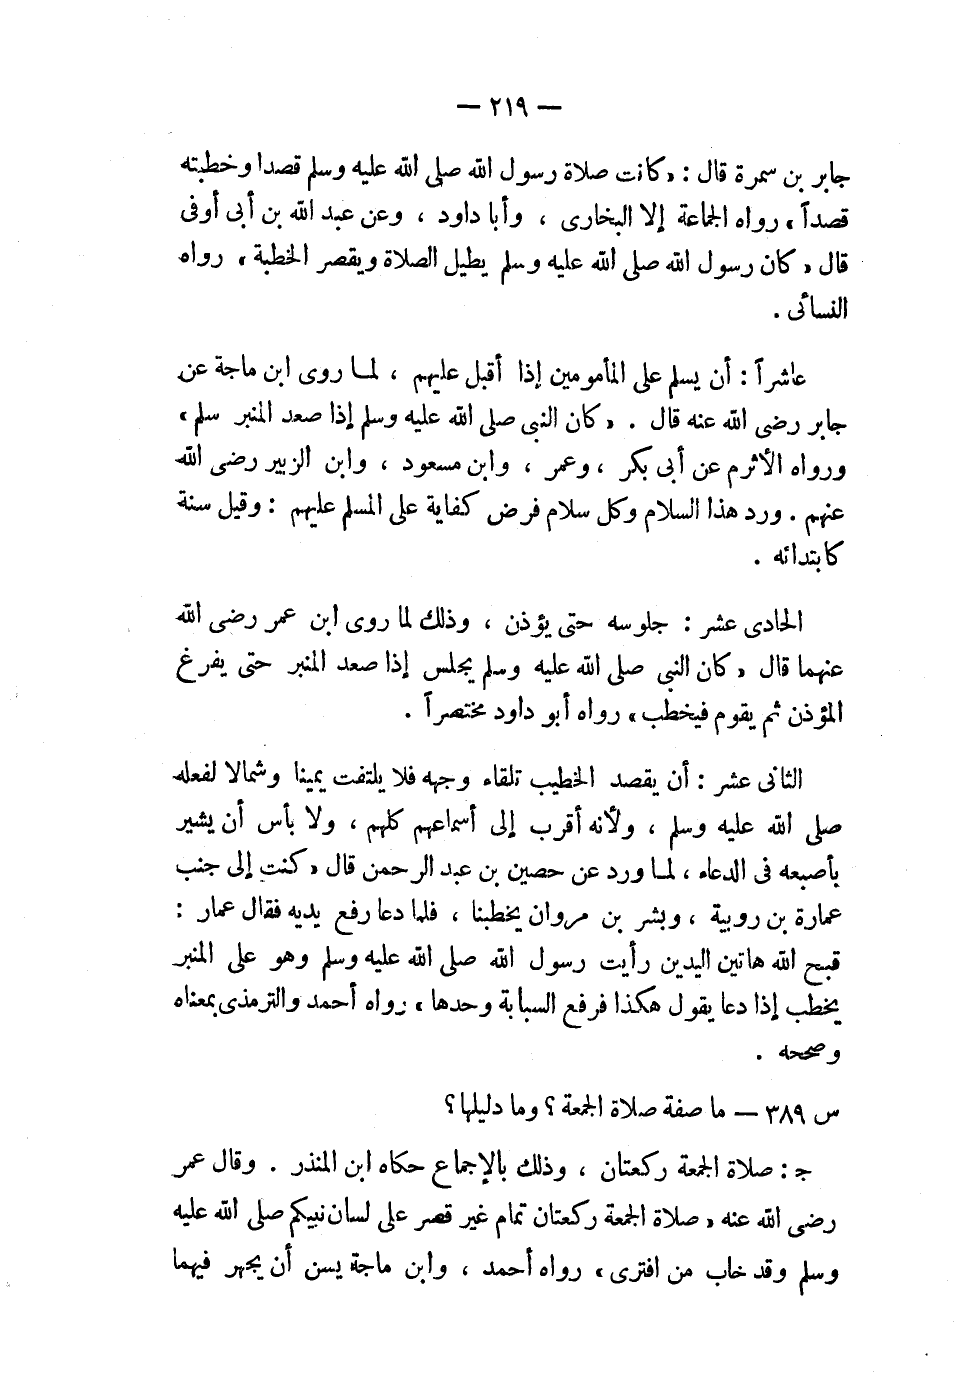 — ٢١٩ —
جابر بن سمرة قال : «كانت صلاة رسول الله صلى الله عليه وسلم قصدا وخطبته
قصداً» رواه الجماعة إلا البخارى ، وأبا داود ، وعن عبد الله بن أبى أوفى
قال «كان رسول الله صلى الله عليه وسلم يطيل الصلاة ويقصر الخطبة» رواه
النسائى .
عاشراً : أن يسلم على المأمومين إذا أقبل عليهم ، لما روى ابن ماجة عن
جابر رضى الله عنه قال . «كان النبى صلى الله عليه وسلم إذا صعد المنبر سلم»
ورواه الأثرم عن أبى بكر ، وعمر ، وابن مسعود ، وابن الزبير رضى الله
عنهم . ورد هذا السلام وكل سلام فرض كفاية على المسلم عليهم : وقيل سنة
كابتدائه .
الحادى عشر : جلوسه حتى يؤذن ، وذلك لما روى ابن عمر رضى الله
عنهما قال «كان النبى صلى الله عليه وسلم يجلس إذا صعد المنبر حتى يفرغ
المؤذن ثم يقوم فيخطب» رواه أبو داود مختصراً .
الثانى عشر : أن يقصد الخطيب تلقاء وجهه فلا يلتفت يمينا وشمالا لفعله
صلى الله عليه وسلم ، ولأنه أقرب إلى أسماعهم كلهم ، ولا بأس أن يشير
بأصبعه فى الدعاء ، لما ورد عن حصين بن عبد الرحمن قال «كنت إلى جنب
عمارة بن روبية ، وبشر بن مروان يخطبنا ، فلما دعا رفع يديه فقال عمار :
قبح الله هاتين اليدين رأيت رسول الله صلى الله عليه وسلم وهو على المنبر
يخطب إذا دعا يقول هكذا فرفع السبابة وحدها» رواه أحمد والترمذى بمعناه
وصححه .
س ٣٨٩ — ما صفة صلاة الجمعة ؟ وما دليلها ؟
ج : صلاة الجمعة ركعتان ، وذلك بالإجماع حكاه ابن المنذر . وقال عمر
رضى الله عنه «صلاة الجمعة ركعتان تمام غير قصر على لسان نبيكم صلى الله عليه
وسلم وقد خاب من افترى» رواه أحمد ، وابن ماجة يسن أن يجهر فيهما